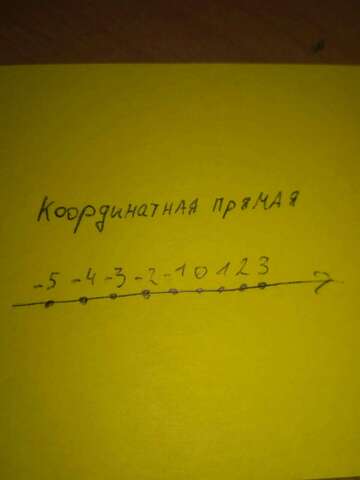 Координатная прямая
-5 -4 -3 -2 -1 0 1 2 3